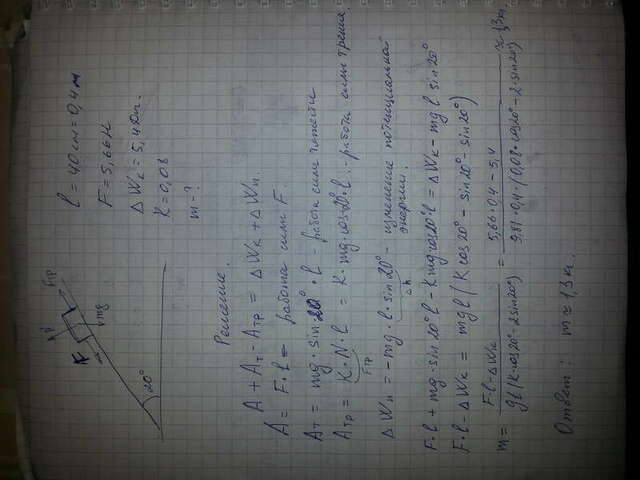 l = 40 см = 0,4 м
F = 5,66 Н
ΔWк = 5,4 Дж.
K = 0,08
m - ?
Fтр
N
F
mg
20°
Решение.
A + Aт - Aтр = ΔWк + ΔWп.
A = F·l — работа силы F.
Aт = mg · sin 20° · l - работа силы тяжести
Aтр = K·N·l = K·mg·cos20°·l - работа силы трения
Fтр
ΔWп = -mg·l·sin20° - изменение потенциальной
Δh
энергии.
F·l + mg·sin20°l - Kmgcos20°l = ΔWк - mgl sin20°
F·l - ΔWк = mgl (K cos20° - sin20° - sin20°)
m = Fl - ΔWк / gl(K·cos20° - 2sin20°) = 5,66·0,4 - 5,4 / 9,81·0,4·(0,08·cos20° - 2·sin20°) ≈ 1,3 кг
Ответ: m ≈ 1,3 кг.